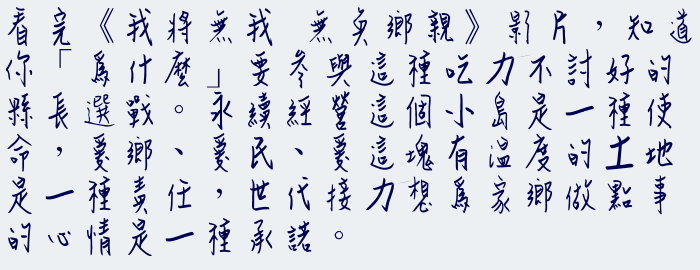 看完《我將無我 無負鄉親》影片，知道
你「為什麼」要參與這種吃力不討好的
縣長選戰。永續經營這個小島是一種使
命，愛鄉、愛民、愛這塊有溫度的土地
是一種責任，世代接力想為家鄉做點事
的心情是一種承諾。